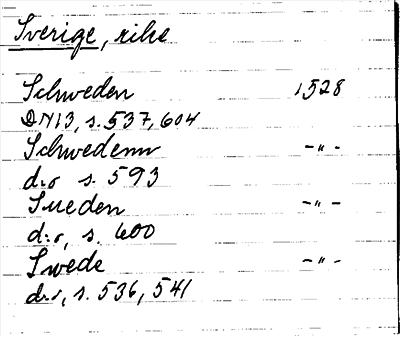 Sverige, rike
Schweden 1528
DN13, s. 537, 604
Schwedenn -"-
d:o s. 593
Sueden -"-
d:o, s. 600
Swede -"-
d:o, s. 536, 541